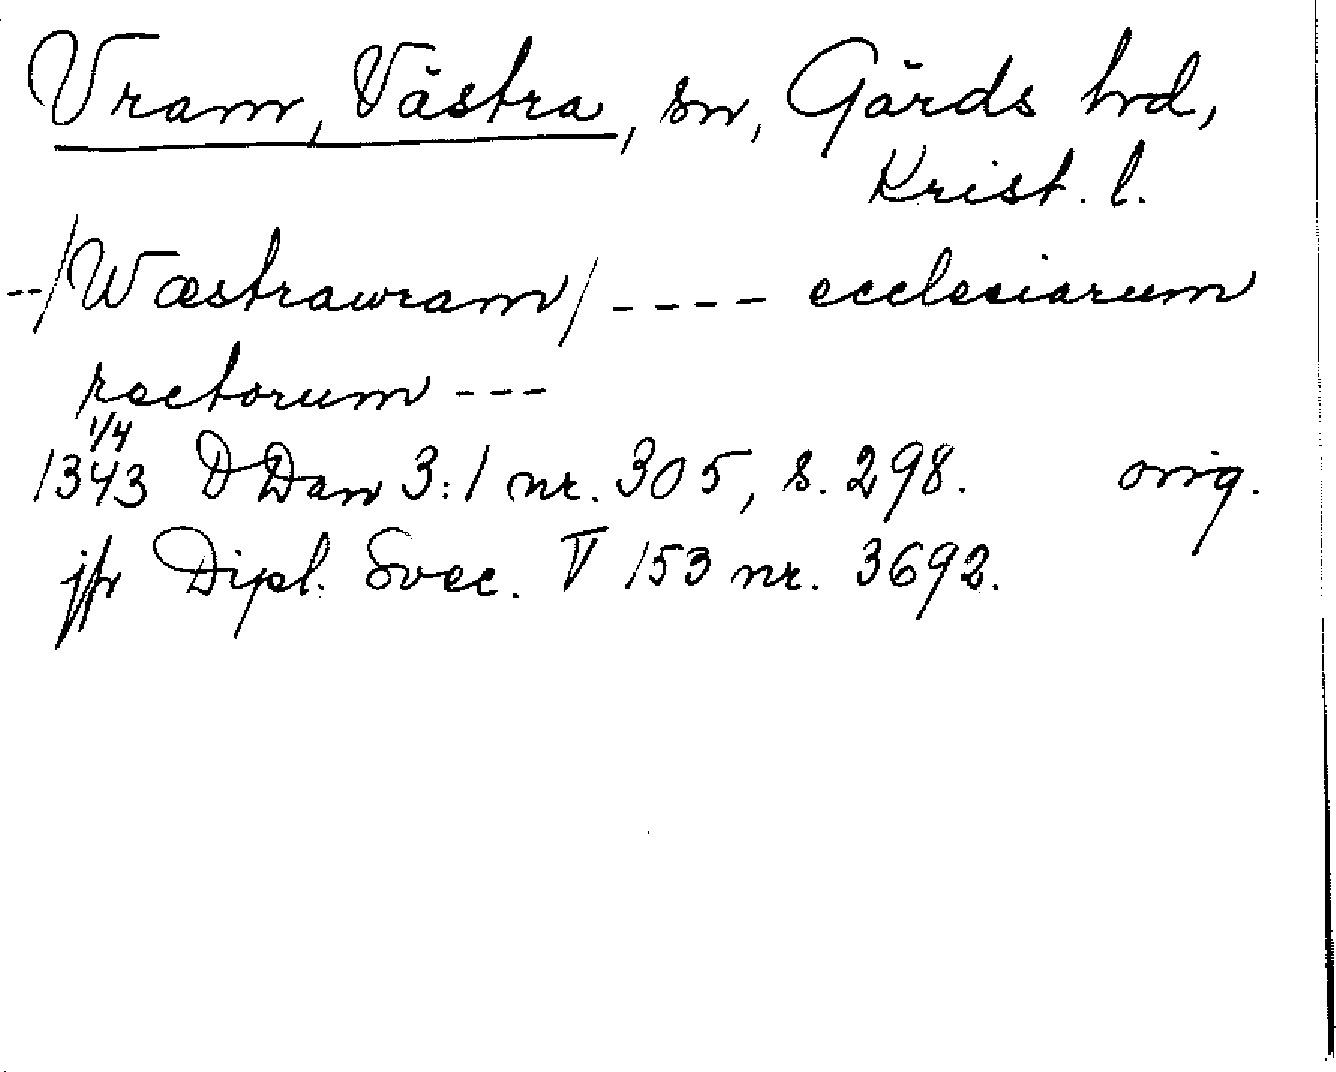 Vram, Västra, sn, Gärds hrd,
Krist. l.
--/Wæstrawram/ ---- ecclesiarum
rectorum ---
1/4
1343 D Dan 3:1 nr. 305, s. 298. orig.
jfr Dipl. Svec. V 153 nr. 3692.